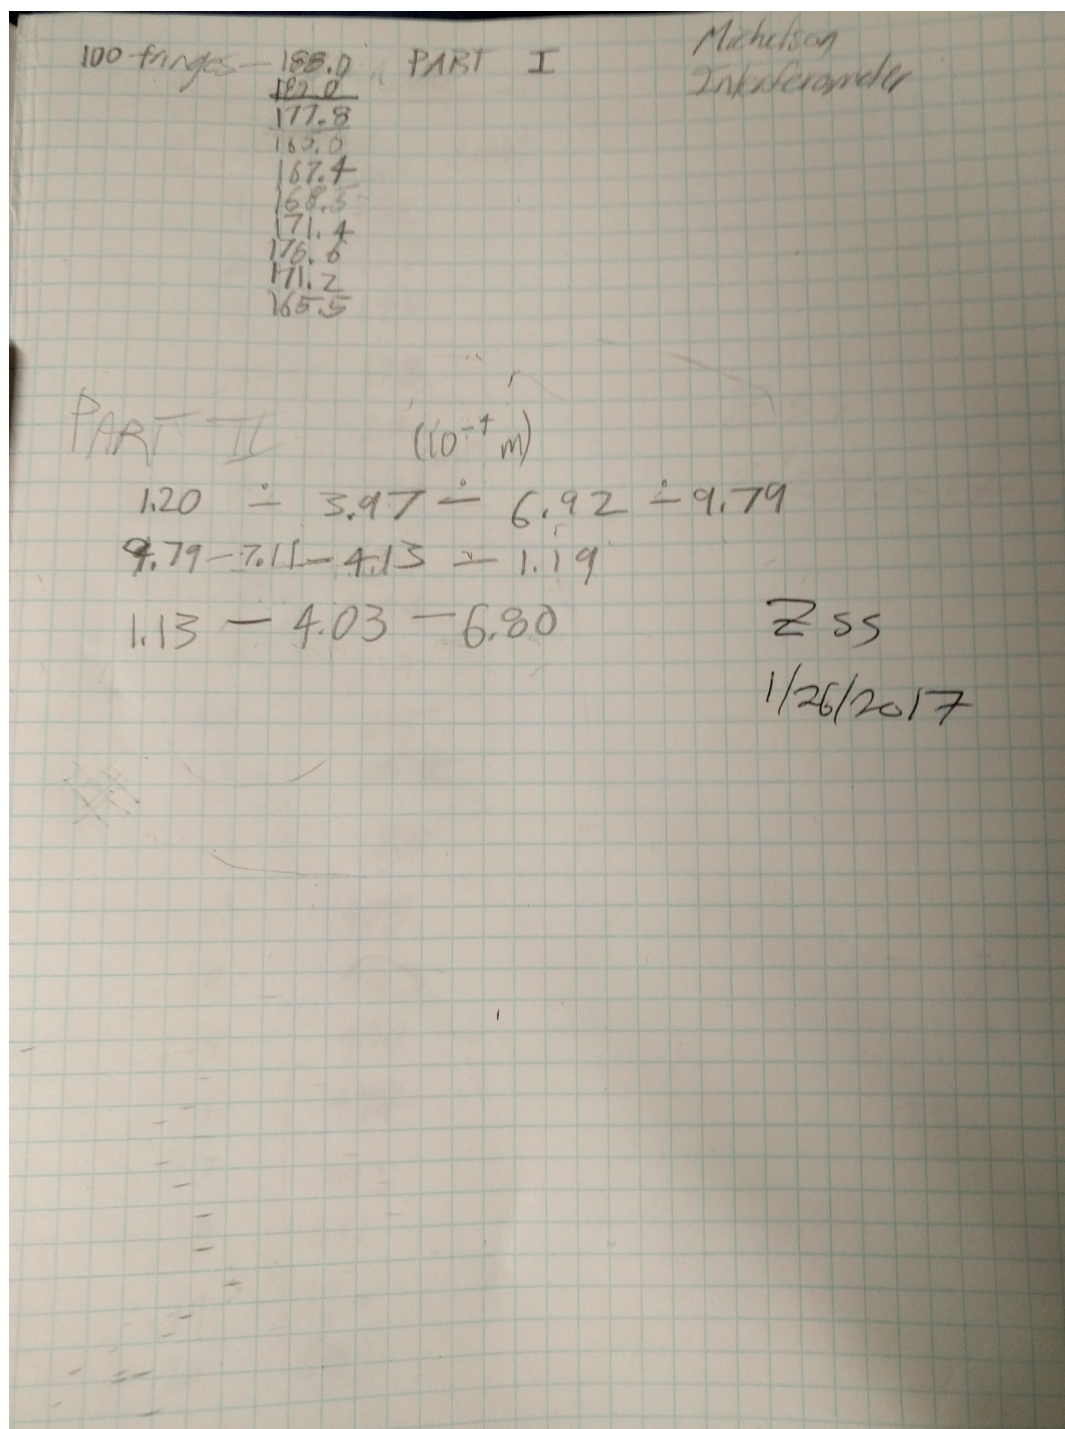 100 fringes — 188.0 PART I Michelson
Interferometer
182.0
177.8
160.0
167.4
168.5
171.4
176.6
171.2
165.5
PART II (10⁻⁴ m)
1.20 ÷ 3.97 ÷ 6.92 ÷ 9.79
9.79 – 7.11 – 4.13 ÷ 1.19
1.13 — 4.03 — 6.80
Zss
1/26/2017